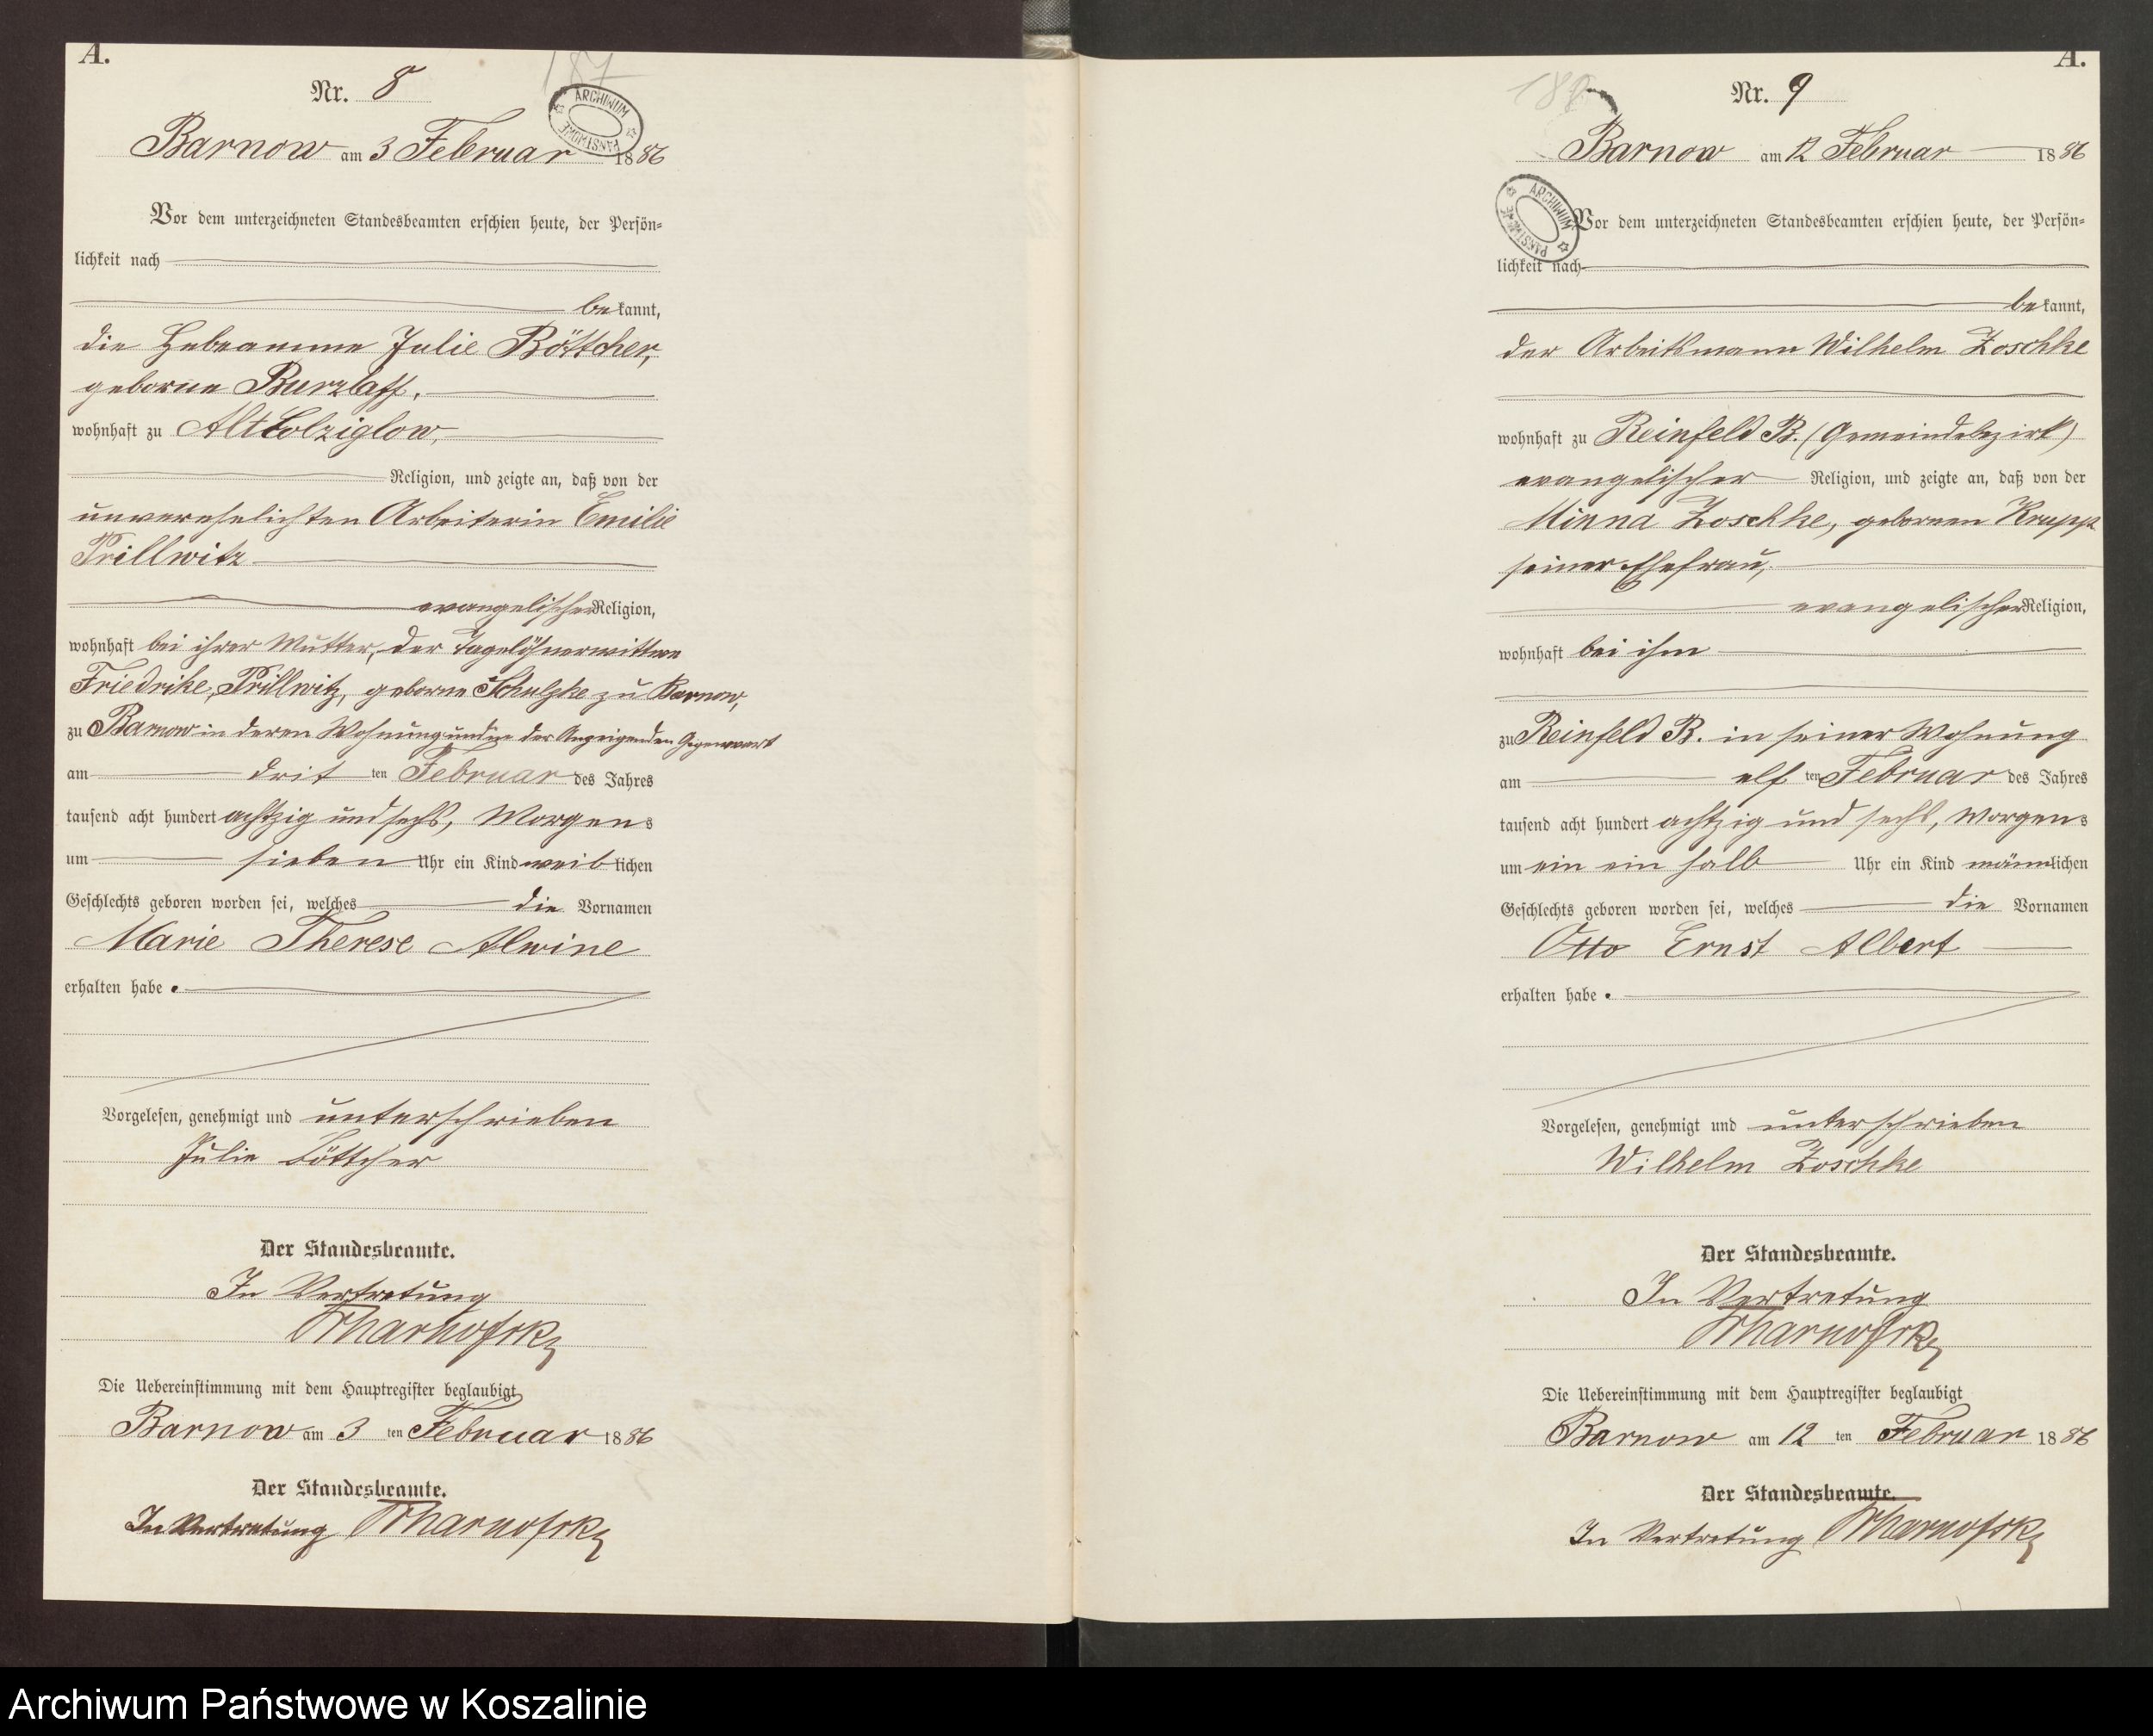 A.
187
Nr. 8
ARCHIWUM PAŃSTWOWE
Barnow am 3 Februar 1886
Vor dem unterzeichneten Standesbeamten erschien heute, der Persön=
lichkeit nach
bekannt,
die Hebeamme Julie Böttcher,
geborne Burzlaff,
wohnhaft zu Alt Colziglow,
Religion, und zeigte an, daß von der
unverehelichten Arbeiterin Emilie
Prillwitz
evangelischer Religion,
wohnhaft bei ihrer Mutter, der Tagelöhnerwittwe
Friedrike Prillwitz, geborne Schulzke zu Barnow,
zu Barnow in deren Wohnung und in der Anzeigenden Gegenwart
am dritten Februar des Jahres
tausend acht hundert achtzig und sechs, Morgens
um sieben Uhr ein Kind weiblichen
Geschlechts geboren worden sei, welches die Vornamen
Marie Therese Alwine
erhalten habe.
Vorgelesen, genehmigt und unterschrieben
Julie Böttcher
Der Standesbeamte.
In Vertretung
Die Uebereinstimmung mit dem Hauptregister beglaubigt
Barnow am 3 ten Februar 1886
Der Standesbeamte.
In Vertretung
A.
Nr. 9
Barnow am 12 Februar 1886
ARCHIWUM PAŃSTWOWE
Vor dem unterzeichneten Standesbeamten erschien heute, der Persön=
lichkeit nach
bekannt,
der Arbeitsmann Wilhelm Zoschke
wohnhaft zu Reinfeld B. (Gemeindebezirk)
evangelischer Religion, und zeigte an, daß von der
Minna Zoschke, gebornen Krupp
seiner Ehefrau,
evangelischer Religion,
wohnhaft bei ihm
zu Reinfeld B. in seiner Wohnung
am elften Februar des Jahres
tausend acht hundert achtzig und sechs, Morgens
um ein ein halb Uhr ein Kind männlichen
Geschlechts geboren worden sei, welches die Vornamen
Otto Ernst Albert
erhalten habe.
Vorgelesen, genehmigt und unterschrieben
Wilhelm Zoschke
Der Standesbeamte.
In Vertretung
Die Uebereinstimmung mit dem Hauptregister beglaubigt
Barnow am 12 ten Februar 1886
Der Standesbeamte.
In Vertretung
Archiwum Państwowe w Koszalinie